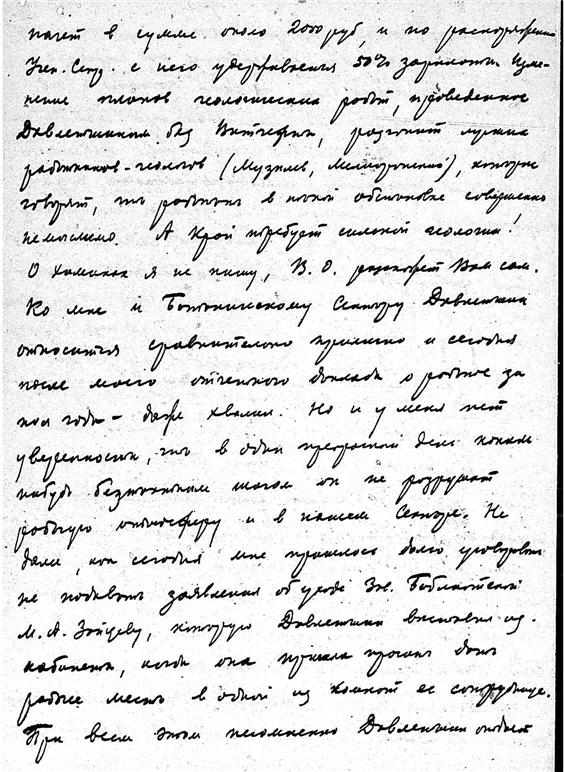 начет в сумме около 2000 руб, и по распоряжению
Учен. Секр. с него удерживается 50% зарплаты. Изме-
нение планов геологических работ, проведенное
Давлетшиным без Виттенберга, разгонит лучших
работников-геологов (Музылев, ), которые
говорят, что работать в такой обстановке совершенно
немыслимо. А Край требует сильной геологии!
О химиках я не пишу, В. О. расскажет Вам сам.
Ко мне и Ботаническому Сектору Давлетшин
относится сравнительно прилично и сегодня
после моего отчетного доклада о работе за
пол года – даже хвалил. Но и у меня нет
уверенности, что в один прекрасный день каким
нибудь бестактным шагом он не разрушит
рабочую атмосферу и в нашем Секторе. Не
далее, как сегодня мне пришлось долго уговаривать
не подавать заявления об уходе Зав. Библиотекой
М. А. Зайцеву, которую Давлетшин выставил из
кабинета, когда она пришла просить дать
рабочее место в одной из комнат ее сотруднице.
При всем этом несомненно Давлетшин отдает